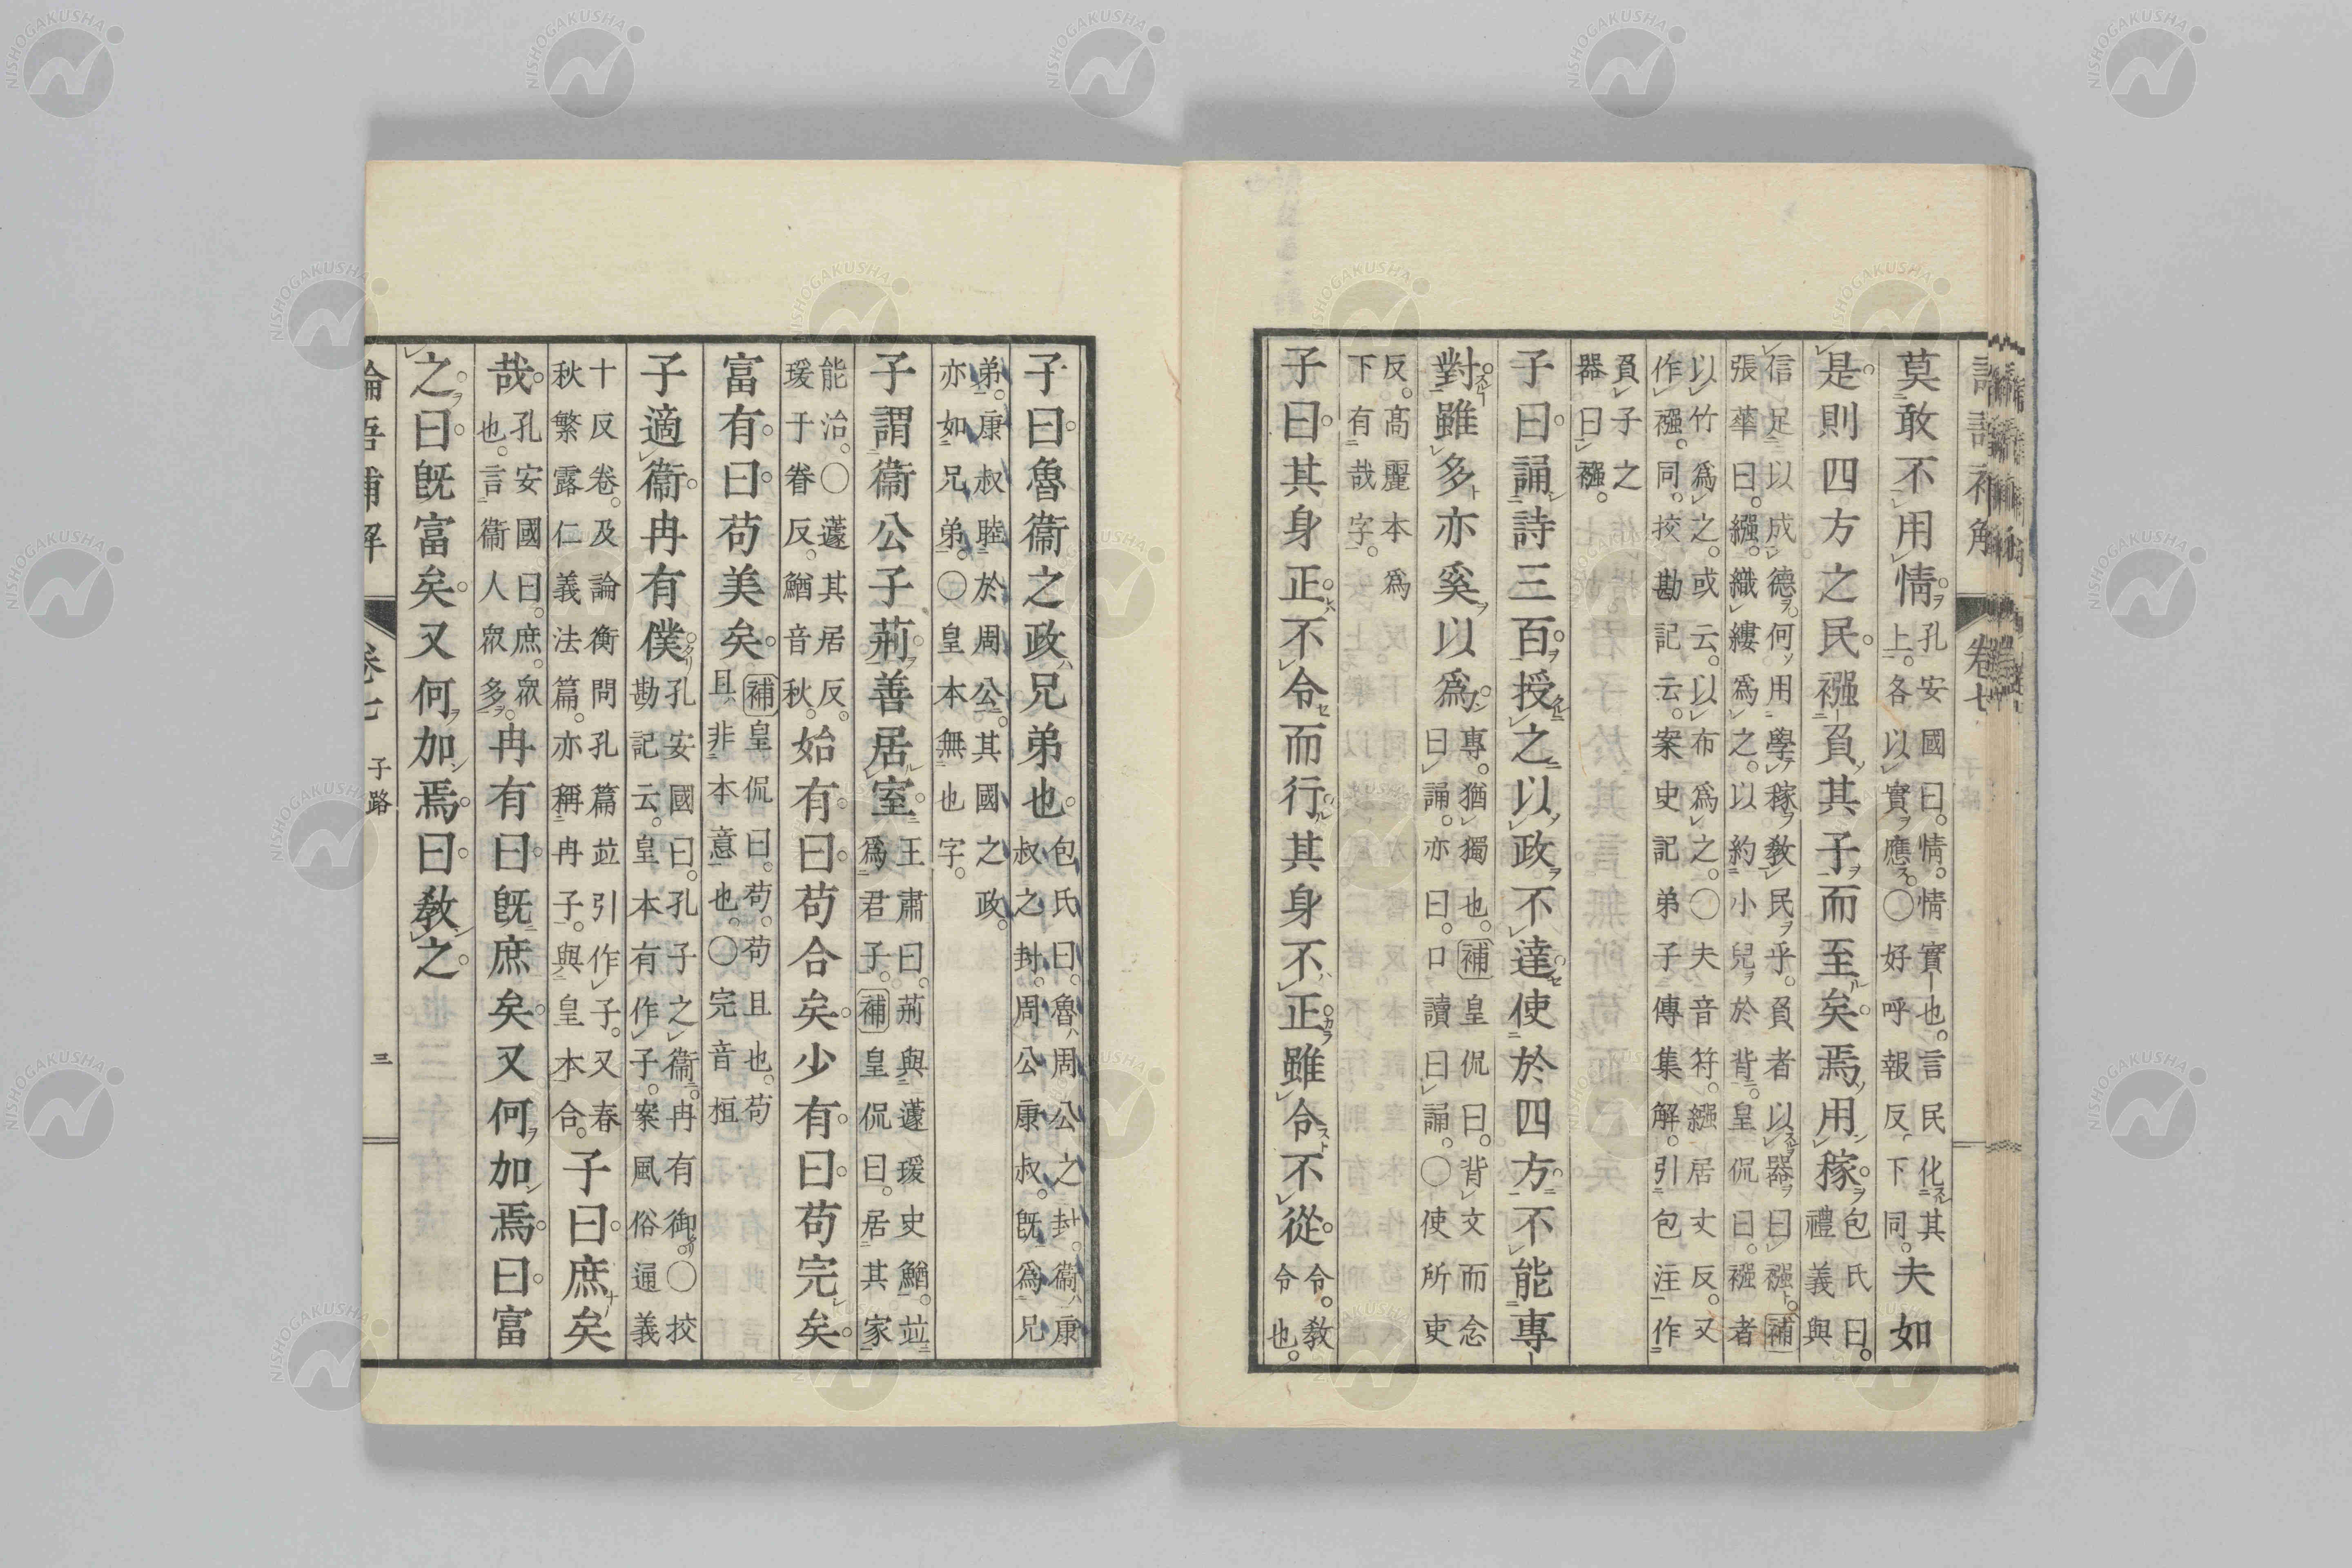 莫敢不用情。孔安國曰。情。情實也。言民化其上。各以實應。〇好呼報反。下同。夫如
是則四方之民。襁負其子而至矣。焉用稼。包氏曰。禮義與
信足以成德。何用學稼教民乎。負者以器曰襁。補張華曰。繈。織縷爲之。以約小兒於背。皇侃曰。襁者
以竹爲之。或云。以布爲之。〇夫音符。繈居丈反。又作襁。同。挍勘記云。案史記弟子傳集解。引包注作
負子之器曰襁。
子曰。誦詩三百。授之以政。不達。使於四方。不能專
對。雖多亦奚以爲。專。猶獨也。補皇侃曰。背文而念曰誦。亦曰。口讀曰誦。〇使所吏
反。高麗本爲下有哉字。
子曰。其身正。不令而行。其身不正。雖令不從。令。教令也。
子曰。魯衞之政。兄弟也。包氏曰。魯。周公之封。衞。康叔之封。周公康叔。既爲兄
弟。康叔睦於周公。其國之政。亦如兄弟。〇皇本無也字。
子謂衞公子荊。善居室。王肅曰。荊與蘧瑗史鰌。並爲君子。補皇侃曰。居其家
能治。〇蘧其居反。瑗于眷反。鰌音秋。始有。曰。苟合矣。少有。曰。苟完矣。
富有。曰。苟美矣。補皇侃曰。苟。苟且也。苟且非本意也。〇完音桓
子適衞。冉有僕。孔安國曰。孔子之衞。冉有御。〇挍勘記云。皇本有作子。案風俗通義
十反卷。及論衡問孔篇並引作子。又春秋繁露仁義法篇。亦稱冉子。與皇本合。子曰。庶矣
哉。孔安國曰。庶。衆也。言衞人衆多。冉有曰。既庶矣。又何加焉。曰。富
之。曰。既富矣。又何加焉。曰。教之。
卷七 子路 三